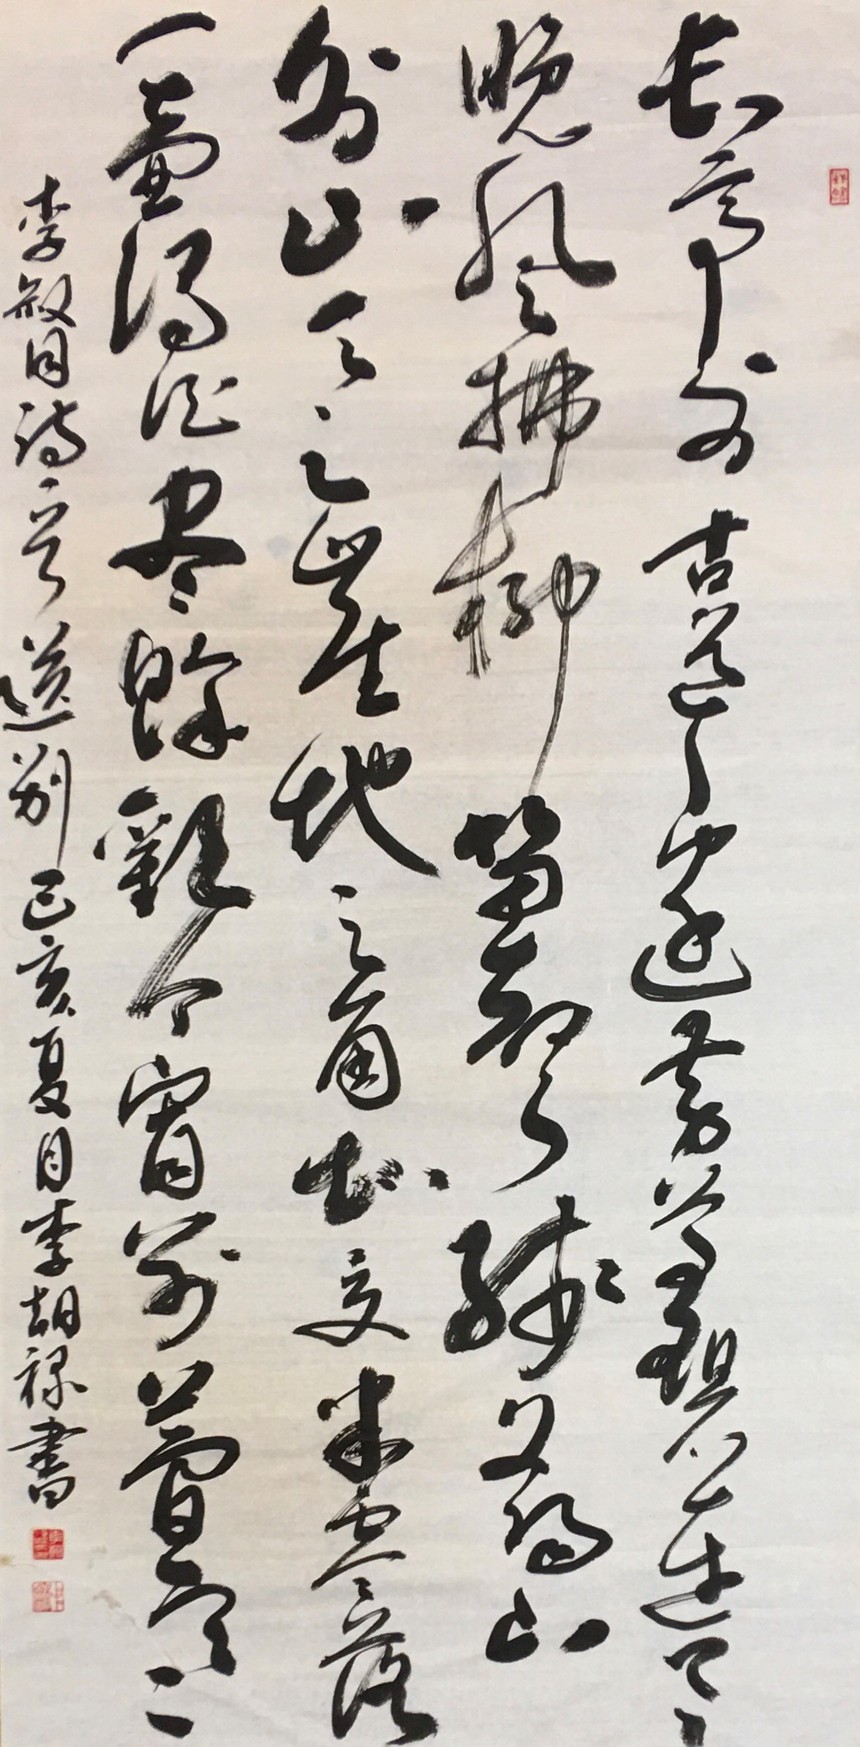 長亭外古道邊芳草碧連天
晚風拂柳笛聲残夕陽山
外山天之崖地之角知交半零落
一壺濁酒尽餘歡今宵别夢寒
李叔同詩送别己亥夏月李胡禄書